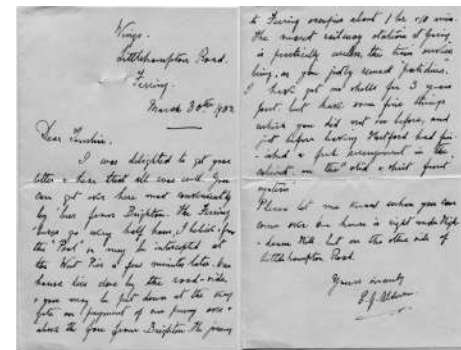 Wings.
Littlehampton Road.
Ferring.
March 30th 1932
Dear Tomlin.
I was delighted to get your
letter & hear that all was well. You
can get over here most conveniently
by 'bus from Brighton. The Ferring
'buses go every half hour, I believe, from
the "Pool" or may be intercepted at
the West Pier a few minutes later. Our
house lies close by the road-side,
& you may be put down at the very
gate on payment of one penny over &
above the fare from Brighton. The journey
to Ferring occupies about 1 hr. 10 min.
The nearest railway station at Goring
is practically useless, the train service
being, as you justly remark "parlous".
I have got no shells for 3 years
past but have some fine things
which you did not see before, and
just before leaving Hartford had
a fresh arrangement in the
cabinet, on the "skid & skirt front
system"
Please let me know when you can
come over. Our house is right under High-
down Hill but on the other side of
Littlehampton Road.
Yours sincerely